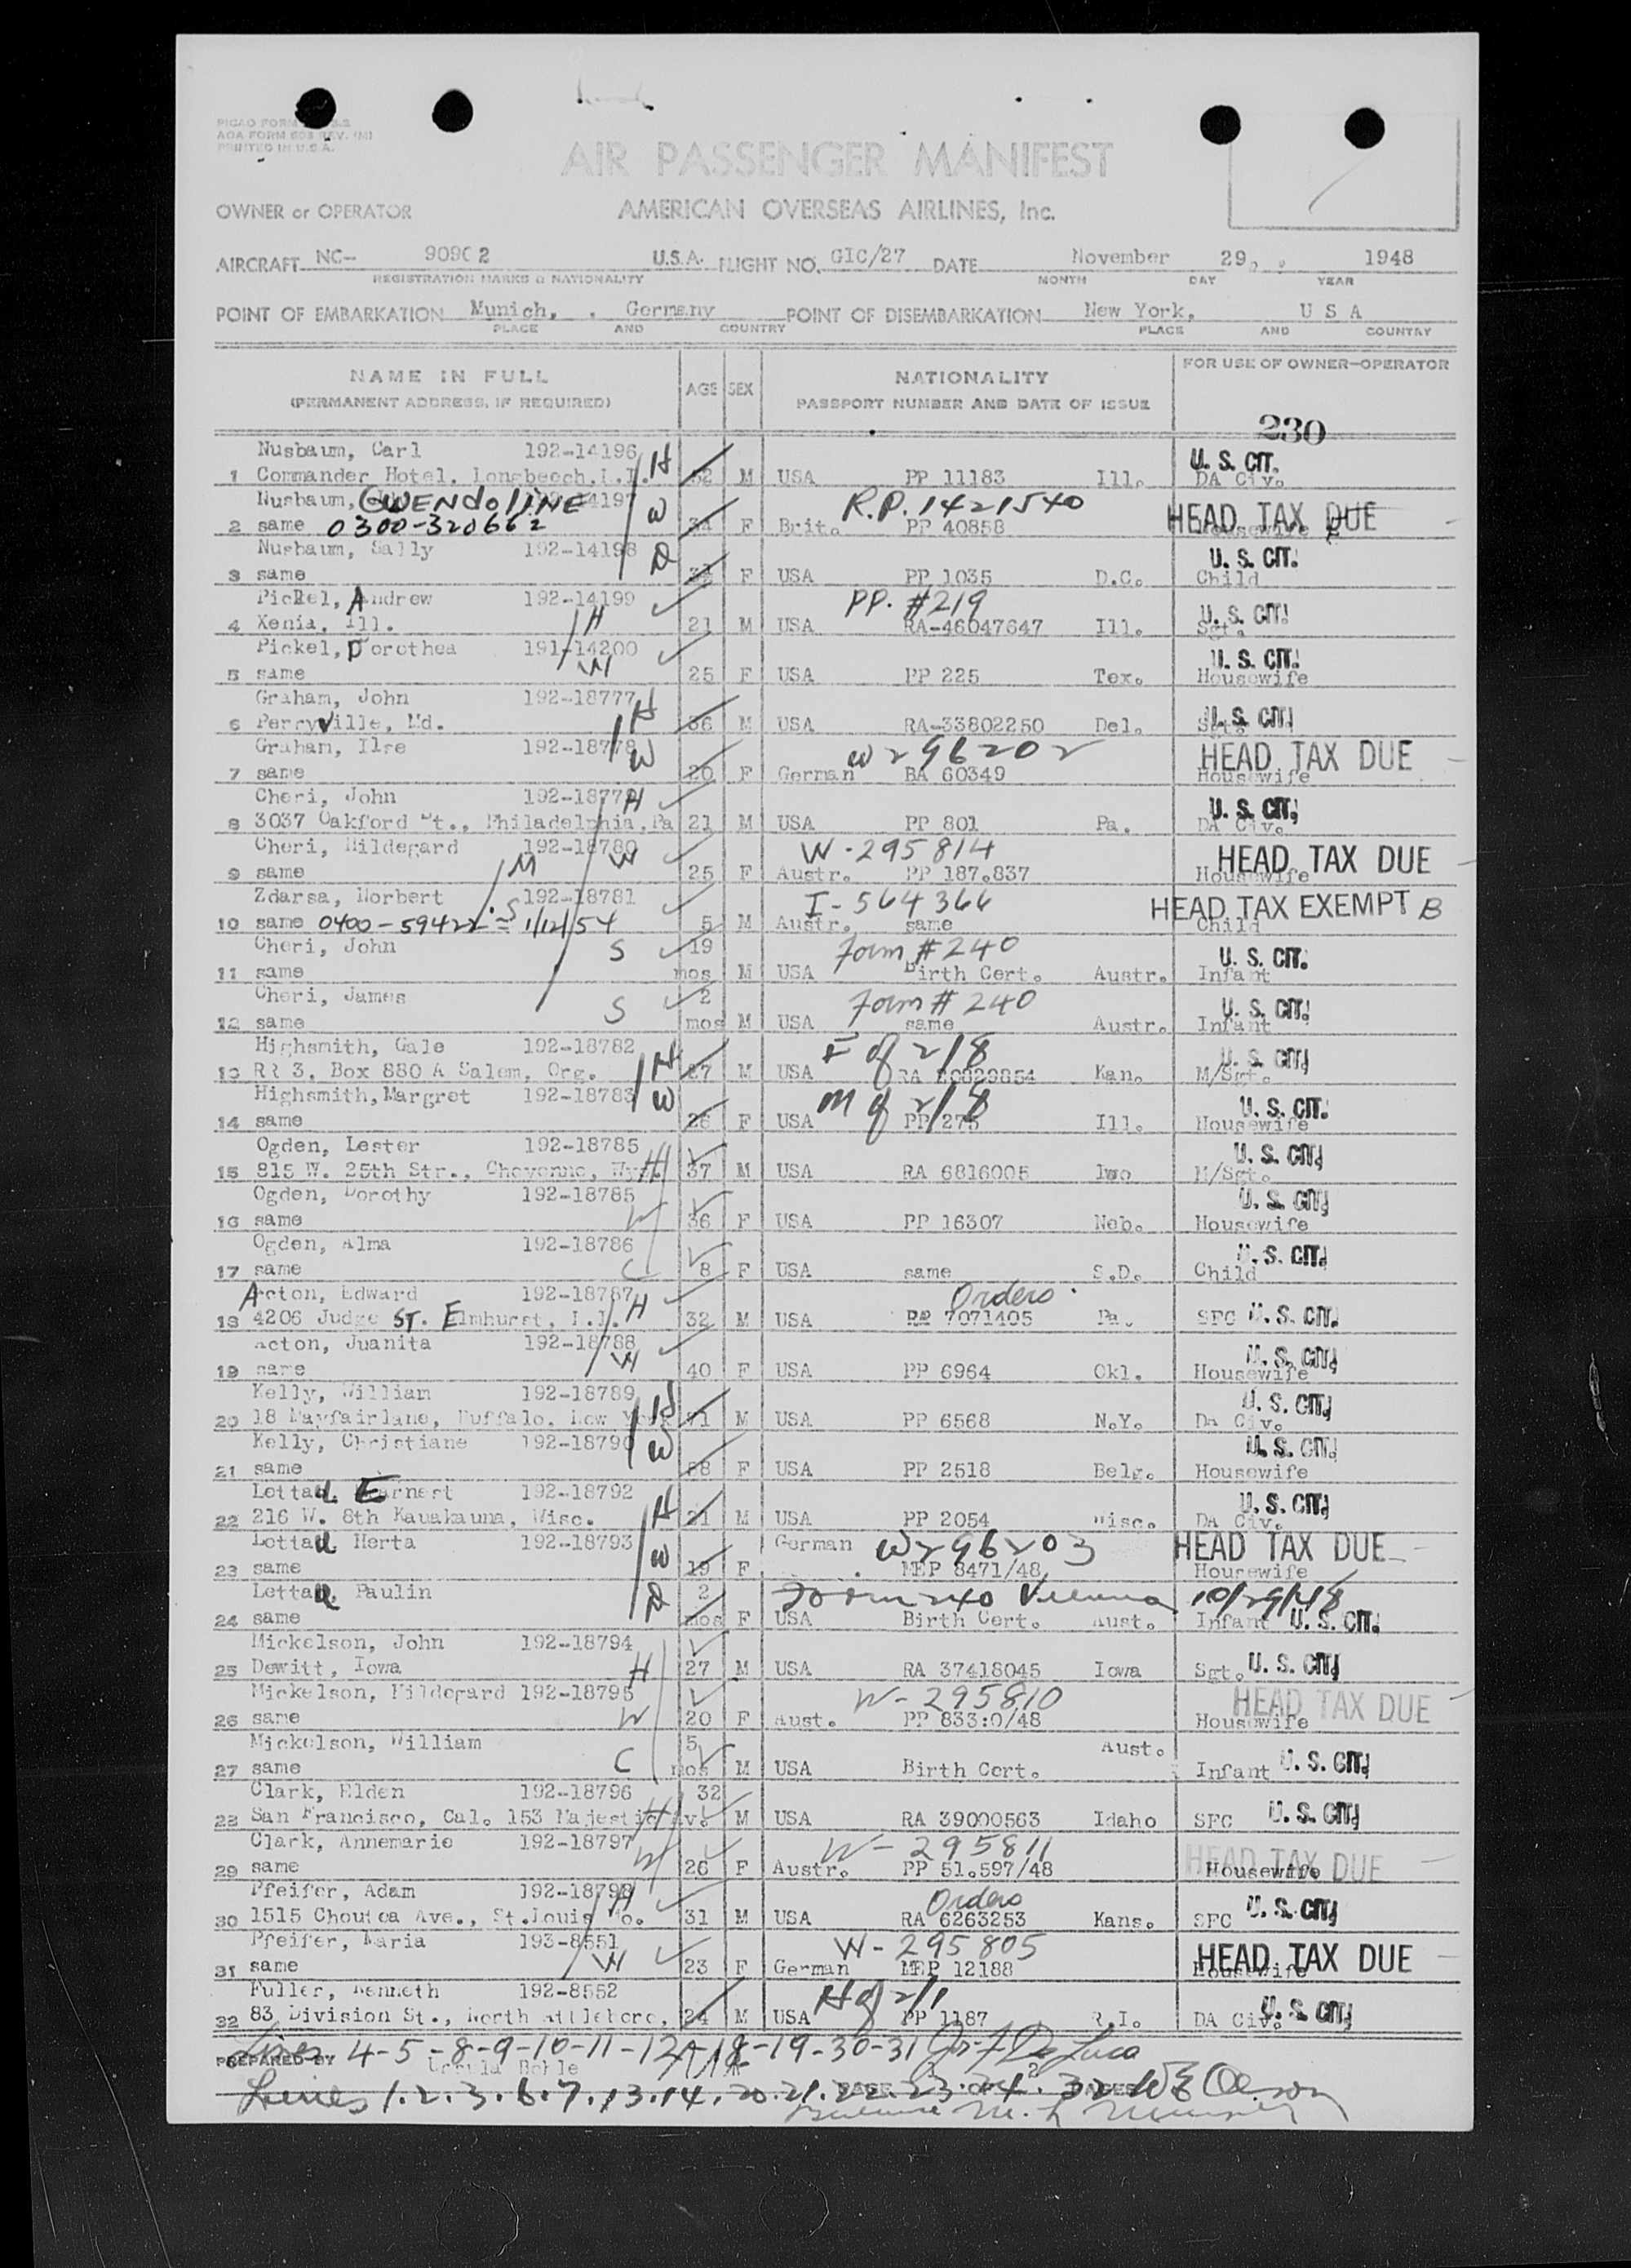 PICAO FORM
AOA FORM 603 REV. (M)
PRINTED IN U.S.A.
AIR PASSENGER MANIFEST
OWNER or OPERATOR AMERICAN OVERSEAS AIRLINES, Inc.
AIRCRAFT NC- 90902 U.S.A. FLIGHT NO. GIC/27 DATE November 29, 1948
REGISTRATION MARKS & NATIONALITY MONTH DAY YEAR
POINT OF EMBARKATION Munich, Germany POINT OF DISEMBARKATION New York, U S A
PLACE AND COUNTRY PLACE AND COUNTRY
NAME IN FULL AGE SEX NATIONALITY FOR USE OF OWNER-OPERATOR
(PERMANENT ADDRESS, IF REQUIRED) PASSPORT NUMBER AND DATE OF ISSUE
230
Nusbaum, Carl 192-14196 H U. S. CIT.
1 Commander Hotel, Longbeech, L.I. 52 M USA PP 11183 Ill. DA Civ.
Nusbaum, GWENDOLINE 14197 W R.P. 1421540 HEAD TAX DUE
2 same 0300-320662 34 F Brit. PP 40858 Housewife
Nusbaum, Sally 192-14198 D U. S. CIT.
3 same F USA PP 1035 D.C. Child
Pickel, Andrew 192-14199 PP. #219 U. S. CIT.
4 Xenia, Ill. H 21 M USA RA-46047647 Ill. Sgt.
Pickel, Dorothea 191-14200 W U. S. CIT.
5 same 25 F USA PP 225 Tex. Housewife
Graham, John 192-18777 H U. S. CIT.
6 Perryville, Md. 36 M USA RA-33802250 Del. Sgt.
Graham, Ilse 192-18778 W W296202 HEAD TAX DUE
7 same 20 F German BA 60349 Housewife
Cheri, John 192-18779 H U. S. CIT.
8 3037 Oakford St., Philadelphia, Pa 21 M USA PP 801 Pa. DA Civ.
Cheri, Hildegard 192-18780 W W-295814 HEAD TAX DUE
9 same M 25 F Austr. PP 187.837 Housewife
Zdarsa, Norbert 192-18781 S I-564366 HEAD TAX EXEMPT B
10 same 0400-59422 = 1/12/54 5 M Austr. same Child
Cheri, John S 19 Form #240 U. S. CIT.
11 same mos M USA Birth Cert. Austr. Infant
Cheri, James S 2 Form #240 U. S. CIT.
12 same mos M USA same Austr. Infant
Highsmith, Gale 192-18782 H F of 2/8 U. S. CIT.
13 RR 3, Box 880 A Salem, Org. 27 M USA RA Kan. M/Sgt.
Highsmith, Margret 192-18783 W M of 2/8 U. S. CIT.
14 same 26 F USA PP 275 Ill. Housewife
Ogden, Lester 192-18785 U. S. CIT.
15 815 W. 25th Str., Cheyenne, Wyo. H 37 M USA RA 6816005 Iwo M/Sgt.
Ogden, Dorothy 192-18785 U. S. CIT.
16 same W 36 F USA PP 16307 Neb. Housewife
Ogden, Alma 192-18786 U. S. CIT.
17 same C 8 F USA same S.D. Child
Acton, Edward 192-18787 H Orders
18 4206 Judge ST. Elmhurst, L.I. 32 M USA RA 7071405 Pa. SFC U. S. CIT.
Acton, Juanita 192-18788 W U. S. CIT.
19 same 40 F USA PP 6964 Okl. Housewife
Kelly, William 192-18789 H U. S. CIT.
20 18 Mayfairlane, Buffalo, New York M USA PP 6568 N.Y. DA Civ.
Kelly, Christiane 192-18790 W U. S. CIT.
21 same 28 F USA PP 2518 Belg. Housewife
Lottad, Earnest 192-18792 U. S. CIT.
22 216 W. 8th Kauakauna, Wisc. H 21 M USA PP 2054 Wisc. DA Civ.
Lottad, Herta 192-18793 W German W296203 HEAD TAX DUE
23 same 19 F MEP 8471/48 Housewife
Lottad, Paulin D 2 Form 240 Vienna 10/29/48
24 same mos F USA Birth Cert. Aust. Infant U. S. CIT.
Mickelson, John 192-18794
25 Dewitt, Iowa H 27 M USA RA 37418045 Iowa Sgt. U. S. CIT.
Mickelson, Hildegard 192-18795 W-295810 HEAD TAX DUE
26 same W 20 F Aust. PP 833:0/48 Housewife
Mickelson, William 5 Aust.
27 same C mos M USA Birth Cert. Infant U. S. CIT.
Clark, Elden 192-18796 32
28 San Francisco, Cal. 153 Majestic Av. H M USA RA 39000563 Idaho SFC U. S. CIT.
Clark, Annemarie 192-18797 W-295811 HEAD TAX DUE
29 same W 26 F Austr. PP 51.597/48 Housewife
Pfeifer, Adam 192-18798 H Orders
30 1515 Choutea Ave., St.Louis Mo. 31 M USA RA 6263253 Kans. SFC U. S. CIT.
Pfeifer, Maria 193-8551 W W-295805 HEAD TAX DUE
31 same 23 F German MEP 12188 Housewife
Fuller, Kenneth 192-8552 H of 2/1
32 83 Division St., North Attleboro, 24 M USA PP 1187 R.I. DA Civ. U. S. CIT.
Lines 4-5-8-9-10-11-12-18-19-30-31 Jos F De Luca
PREPARED BY Ursula Bohle
Lines 1.2.3.6.7.13.14.20.21.22.23.24.32 W E Olson